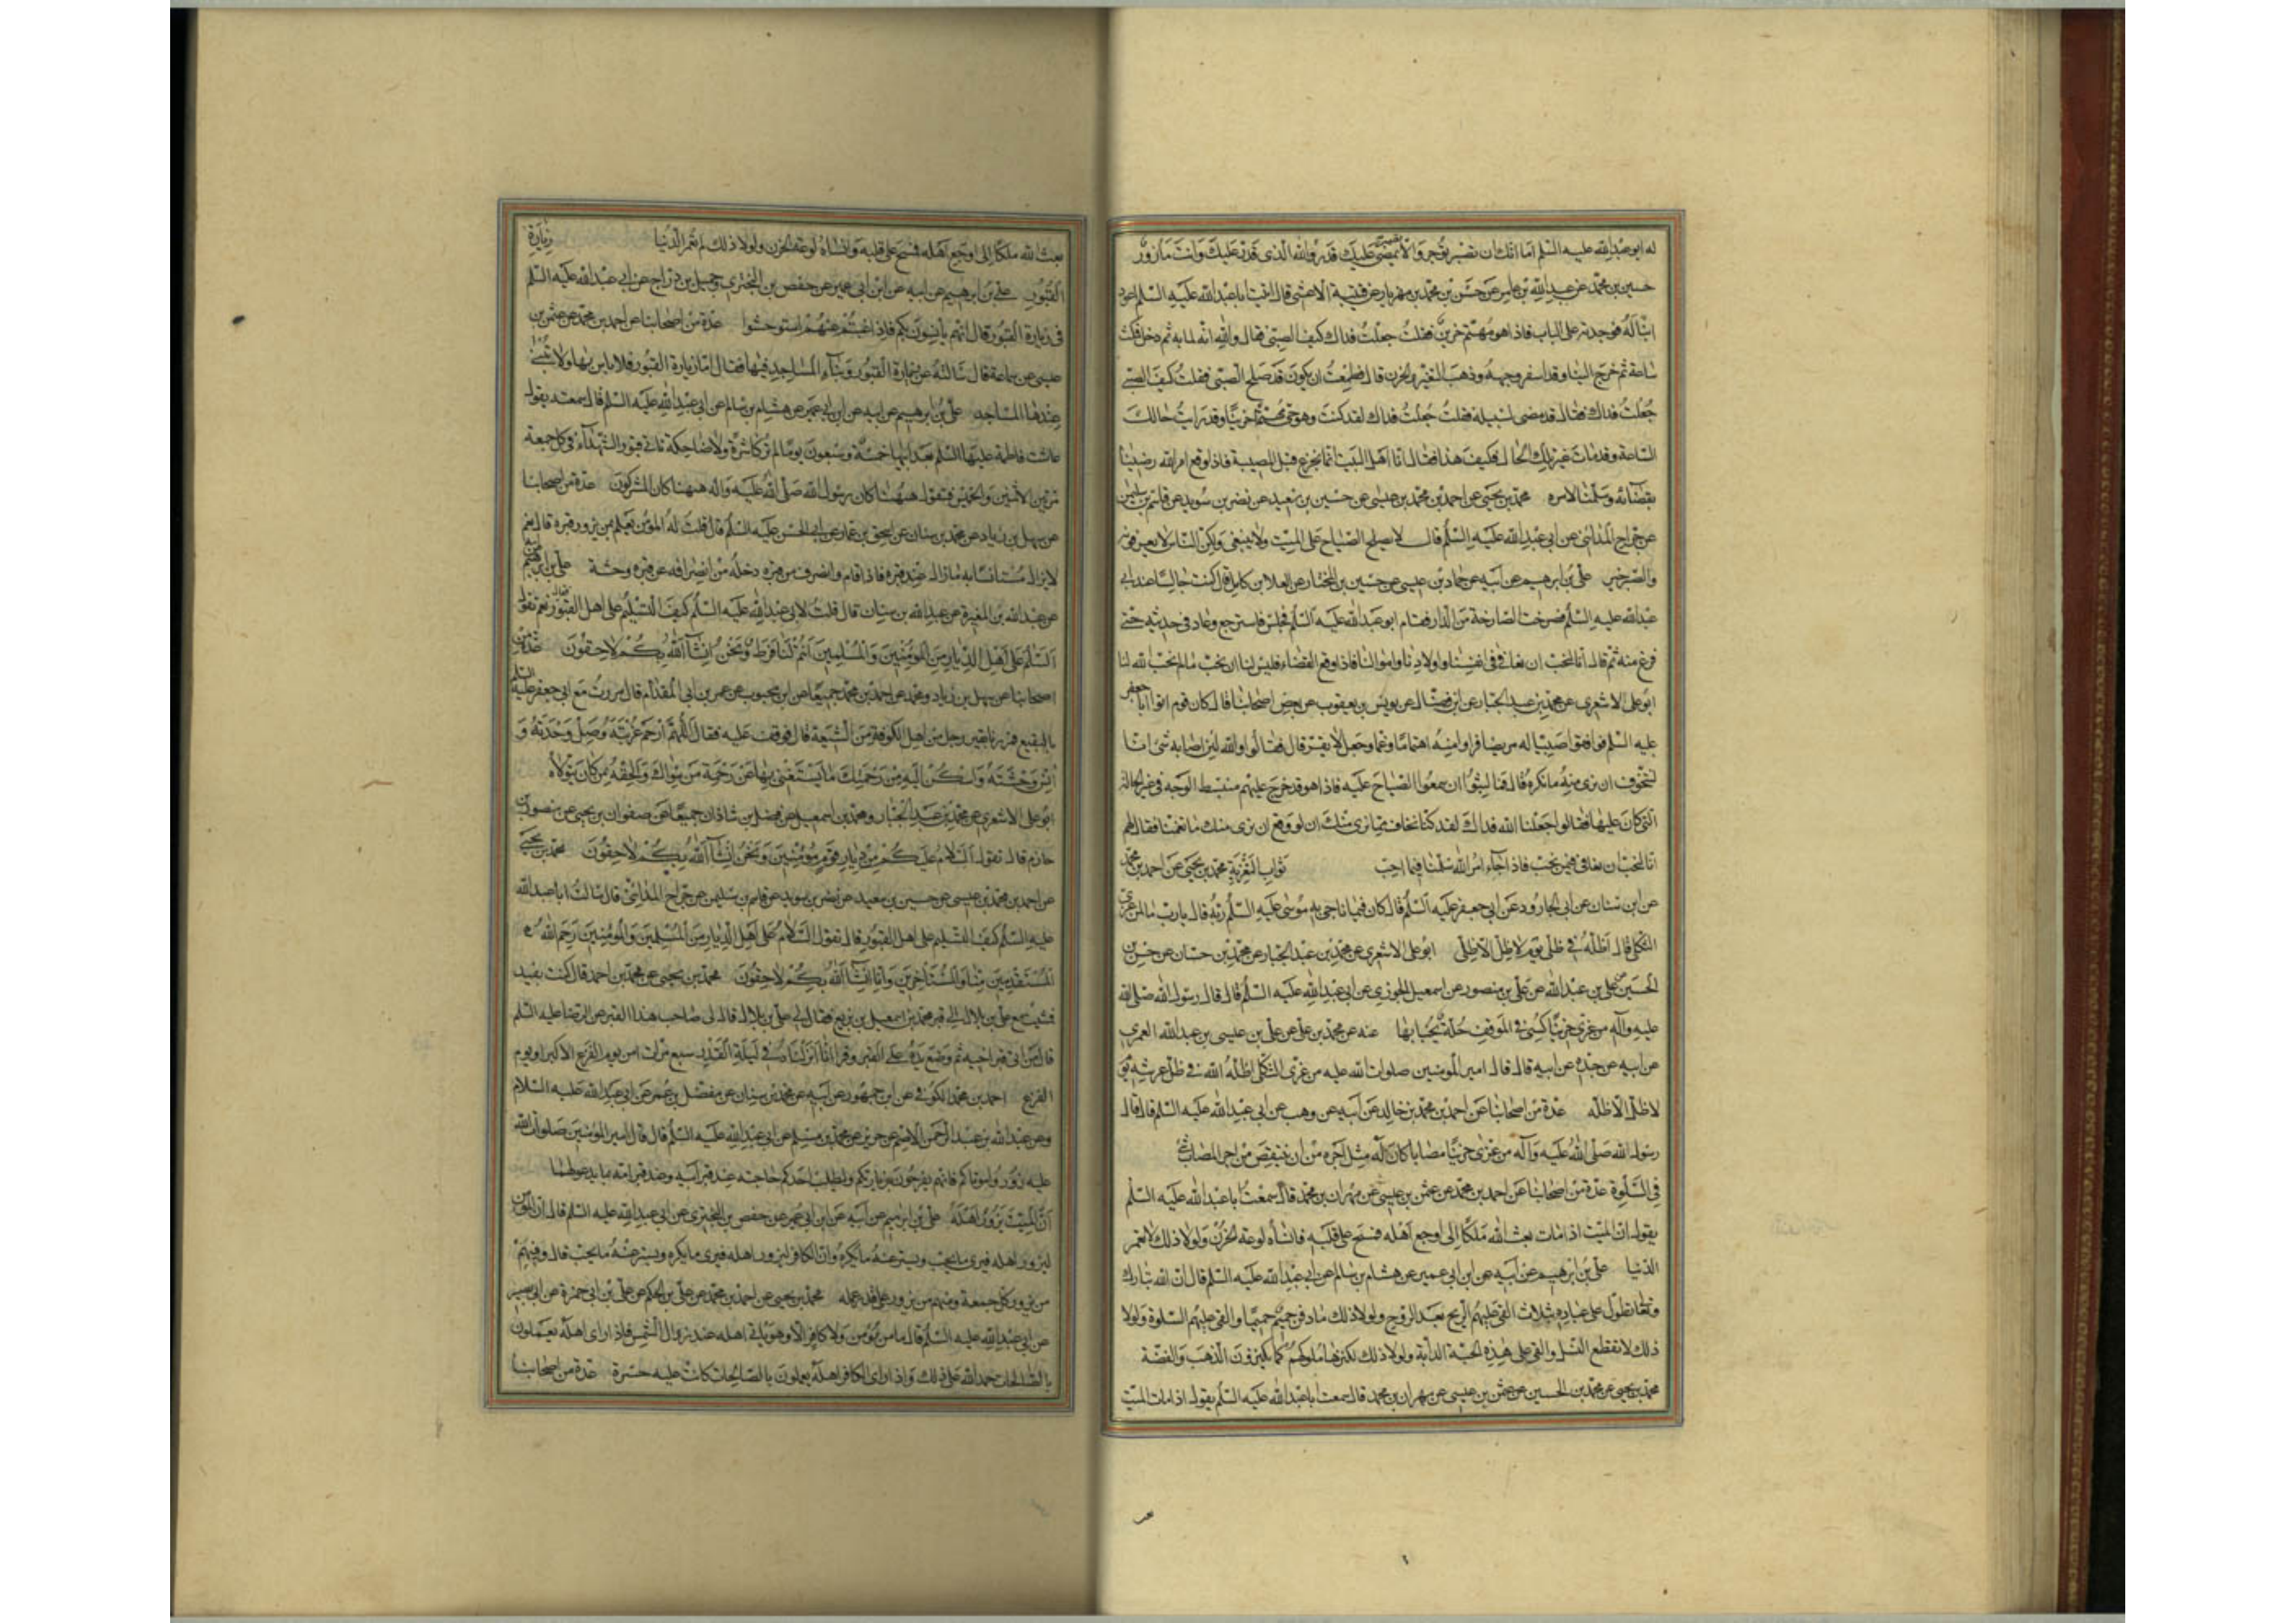 له ابو عبد الله عليه السلم اما انك ان تصبر توجر والا يمضى عليك قدر الله الذى قدر عليك وانت مأزور
حسين بن محمد عن عبد الله بن عامر عن على بن مهزيار عن قتيبة الاعشى قال اتيت ابا عبد الله عليه السلم اعود
ابنا له فوجدته على الباب فاذا هو مهتم حزين فقلت جعلت فداك كيف الصبى فقال والله انه لما به ثم دخل فمكث
ساعة ثم خرج الينا وقد اسفر وجهه وذهب التغير والحزن قال فطمعت ان يكون قد صلح الصبى فقلت كيف الصبى
جعلت فداك فقال قد مضى لسبيله فقلت جعلت فداك لقد كنت وهو حى مهتما حزينا وقد رايت حالك
الساعة وقد مات غير تلك الحال فكيف هذا فقال انا اهل البيت انما نجزع قبل المصيبة فاذا وقع امر الله رضينا
بقضائه وسلمنا لامره محمد بن يحيى عن احمد بن محمد بن عيسى عن حسين بن سعيد عن نضر بن سويد عن قاسم بن سليمن
عن جراح المداينى عن ابى عبد الله عليه السلم قال لا يصلح الصياح على الميت ولا ينبغى ولكن الناس لا يعرفونه
والصبر خير على بن ابرهيم عن ابيه عن حماد بن عيسى عن حسين بن المختار عن العلا بن كامل قال كنت جالسا عند ابى
عبد الله عليه السلم فصرخت الصارخة من الدار فقام ابو عبد الله عليه السلم فجلس فاسترجع وعاد فى حديثه حتى
فرغ منه ثم قال انا لنحب ان نعافى فى انفسنا واولادنا واموالنا فاذا وقع القضاء فليس لنا ان نحب ما لم يحب الله لنا
ابو على الاشعرى عن محمد بن عبد الجبار عن ابن فضال عن يونس بن يعقوب عن بعض اصحابنا قال كان قوم اتوا ابا جعفر
عليه السلم فوافقوا صبيا له مريضا فراوا منه اهتماما وغما وجعل لا يقر قال فقالوا والله لئن اصابه شئ انا
لنتخوف ان نرى منه ما نكره قال فما لبثوا ان سمعوا الصياح عليه فاذا هو قد خرج عليهم منبسط الوجه فى غير الحال
التى كان عليها فقالوا جعلنا الله فداك لقد كنا نخاف مما نرى منك ان لو وقع ان نرى منك ما يغمنا فقال لهم
انا لنحب ان نعافى فيمن نحب فاذا جاء امر الله سلمنا فيما احب ثواب التعزية محمد بن يحيى عن احمد بن محمد
عن ابن سنان عن ابى الجارود عن ابى جعفر عليه السلم قال كان فيما ناجى به موسى عليه السلم ربه قال يا رب ما لمن عزى
الثكلى قال اظله فى ظلى يوم لا ظل الا ظلى ابو على الاشعرى عن محمد بن عبد الجبار عن محمد بن حسان عن حسن بن
الحسين عن على بن عبد الله عن على بن منصور عن اسمعيل الجوزى عن ابى عبد الله عليه السلم قال قال رسول الله صلى الله
عليه وآله من عزى حزينا كسى فى الموقف حلة يحبا بها عنه عن محمد بن على عن على بن عيسى بن عبد الله العمرى
عن ابيه عن جده عن ابيه قال قال امير المومنين صلوات الله عليه من عزى الثكلى اظله الله فى ظل عرشه يوم
لا ظل الا ظله عدة من اصحابنا عن احمد بن محمد بن خالد عن ابيه عن وهب عن ابى عبد الله عليه السلم قال قال
رسول الله صلى الله عليه وآله من عزى حزينا مصابا كان له مثل اجره من ان ينتقص من اجر المصاب شئ
فى السلوة عدة من اصحابنا عن احمد بن محمد عن عثمن بن عيسى عن مهران بن محمد قال سمعت ابا عبد الله عليه السلم
يقول ان الميت اذا مات بعث الله ملكا الى اوجع اهله فمسح على قلبه فانساه لوعة الحزن ولولا ذلك لم تعمر
الدنيا على بن ابرهيم عن ابيه عن ابن ابى عمير عن هشام بن سالم عن ابى عبد الله عليه السلم قال ان الله تبارك
وتعالى تطول على عباده بثلاث القى عليهم الريح بعد الروح ولولا ذلك ما دفن حميم حميما والقى عليهم السلوة ولولا
ذلك لانقطع النسل والقى على هذه الحبة الدابة ولولا ذلك لكنزها ملوكهم كما يكنزون الذهب والفضة
محمد بن يحيى عن محمد بن الحسين عن عثمن بن عيسى عن مهران بن محمد قال سمعت ابا عبد الله عليه السلم يقول اذا مات الميت
بعث الله ملكا الى اوجع اهله فمسح على قلبه وانساه لوعة الحزن ولولا ذلك لم تعمر الدنيا زيارة
القبور على بن ابرهيم عن ابيه عن ابن ابى عمير عن حفص بن البخترى وجميل بن دراج عن ابى عبد الله عليه السلم
فى زيارة القبور قال انهم يأنسون بكم فاذا غبتم عنهم استوحشوا عدة من اصحابنا عن احمد بن محمد عن عثمن بن
عيسى عن سماعة قال سالته عن زيارة القبور وبناء المساجد فيها فقال اما زيارة القبور فلا باس بها ولا تبنى
عندها المساجد على بن ابرهيم عن ابيه عن ابن ابى عمير عن هشام بن سالم عن ابى عبد الله عليه السلم قال سمعته يقول
عاشت فاطمة عليها السلم بعد ابيها خمسة وسبعون يوما لم تر كاشرة ولا ضاحكة تاتى قبور الشهداء فى كل جمعة
مرتين الاثنين والخميس فتقول ههنا كان رسول الله صلى الله عليه واله ههنا كان المشركون عدة من اصحابنا
عن سهل بن زياد عن محمد بن سنان عن اسحق بن عمار عن ابى الحسن عليه السلم قال قلت له المؤمن يعلم من يزور قبره قال نعم
لا يزال مستانسا به ما زال عند قبره فاذا قام وانصرف من قبره دخله من انصرافه عن قبره وحشة على بن ابرهيم عن ابيه
عن عبد الله بن المغيرة عن عبد الله بن سنان قال قلت لابى عبد الله عليه السلم كيف التسليم على اهل القبور قال نعم تقول
السلم على اهل الديار من المومنين والمسلمين انتم لنا فرط ونحن انشا الله بكم لاحقون عدة من
اصحابنا عن سهل بن زياد ومحمد عن احمد بن محمد جميعا عن ابن محبوب عن عمر بن ابى المقدام قال مررت مع ابى جعفر عليه السلم
بالبقيع فمررنا بقبر رجل من اهل الكوفة من الشيعة قال فوقف عليه فقال اللهم ارحم غربته وصل وحدته و
آنس وحشته واسكن اليه من رحمتك ما يستغنى بها عن رحمة من سواك والحقه بمن كان يتولاه
ابو على الاشعرى عن محمد بن عبد الجبار ومحمد بن اسمعيل عن فضل بن شاذان جميعا عن صفوان بن يحيى عن منصور بن
حازم قال تقول السلام عليكم من ديار قوم مؤمنين ونحن انشا الله بكم لاحقون محمد بن يحيى
عن احمد بن محمد بن عيسى عن حسين بن سعيد عن نضر بن سويد عن قاسم بن سليمن عن جراح المداينى قال سالت ابا عبد الله
عليه السلم كيف التسليم على اهل القبور قال تقول السلام على اهل الديار من المسلمين والمومنين رحم الله
المستقدمين منا والمستاخرين وانا انشا الله بكم لاحقون محمد بن يحيى عن محمد بن احمد قال كنت بفيد
فمشيت مع على بن بلال الى قبر محمد بن اسمعيل بن بزيع فقال لى على بن بلال قال لى صاحب هذا القبر عن الرضا عليه السلم
قال من اتى قبر اخيه ثم وضع يده على القبر وقرا انا انزلناه فى ليلة القدر سبع مرات امن يوم الفزع الاكبر او يوم
الفزع احمد بن محمد الكوفى عن ابن جمهور عن ابيه عن محمد بن سنان عن مفضل بن عمر عن ابى عبد الله عليه السلام
وعن عبد الله بن عبد الرحمن الاصم عن حريز عن محمد بن مسلم عن ابى عبد الله عليه السلم قال قال امير المومنين صلوات الله
عليه زوروا موتاكم فانهم يفرحون بزيارتكم وليطلب احدكم حاجته عند قبر ابيه وعند قبر امه بما يدعو لهما
ان الميت يزور اهله على بن ابرهيم عن ابيه عن ابن ابى عمير عن حفص بن البخترى عن ابى عبد الله عليه السلم قال ان المؤمن
ليزور اهله فيرى ما يحب ويستر عنه ما يكره وان الكافر ليزور اهله فيرى ما يكره ويستر عنه ما يحب قال وفيهم
من يزور كل جمعة ومنهم من يزور على قدر عمله محمد بن يحيى عن احمد بن محمد عن على بن الحكم عن على بن ابى حمزة عن ابى بصير
عن ابى عبد الله عليه السلم قال ما من مؤمن ولا كافر الا وهو ياتى اهله عند زوال الشمس فاذا راى اهله يعملون
بالصالحات حمد الله على ذلك واذا راى الكافر اهله يعملون بالصالحات كانت عليه حسرة عدة من اصحابنا